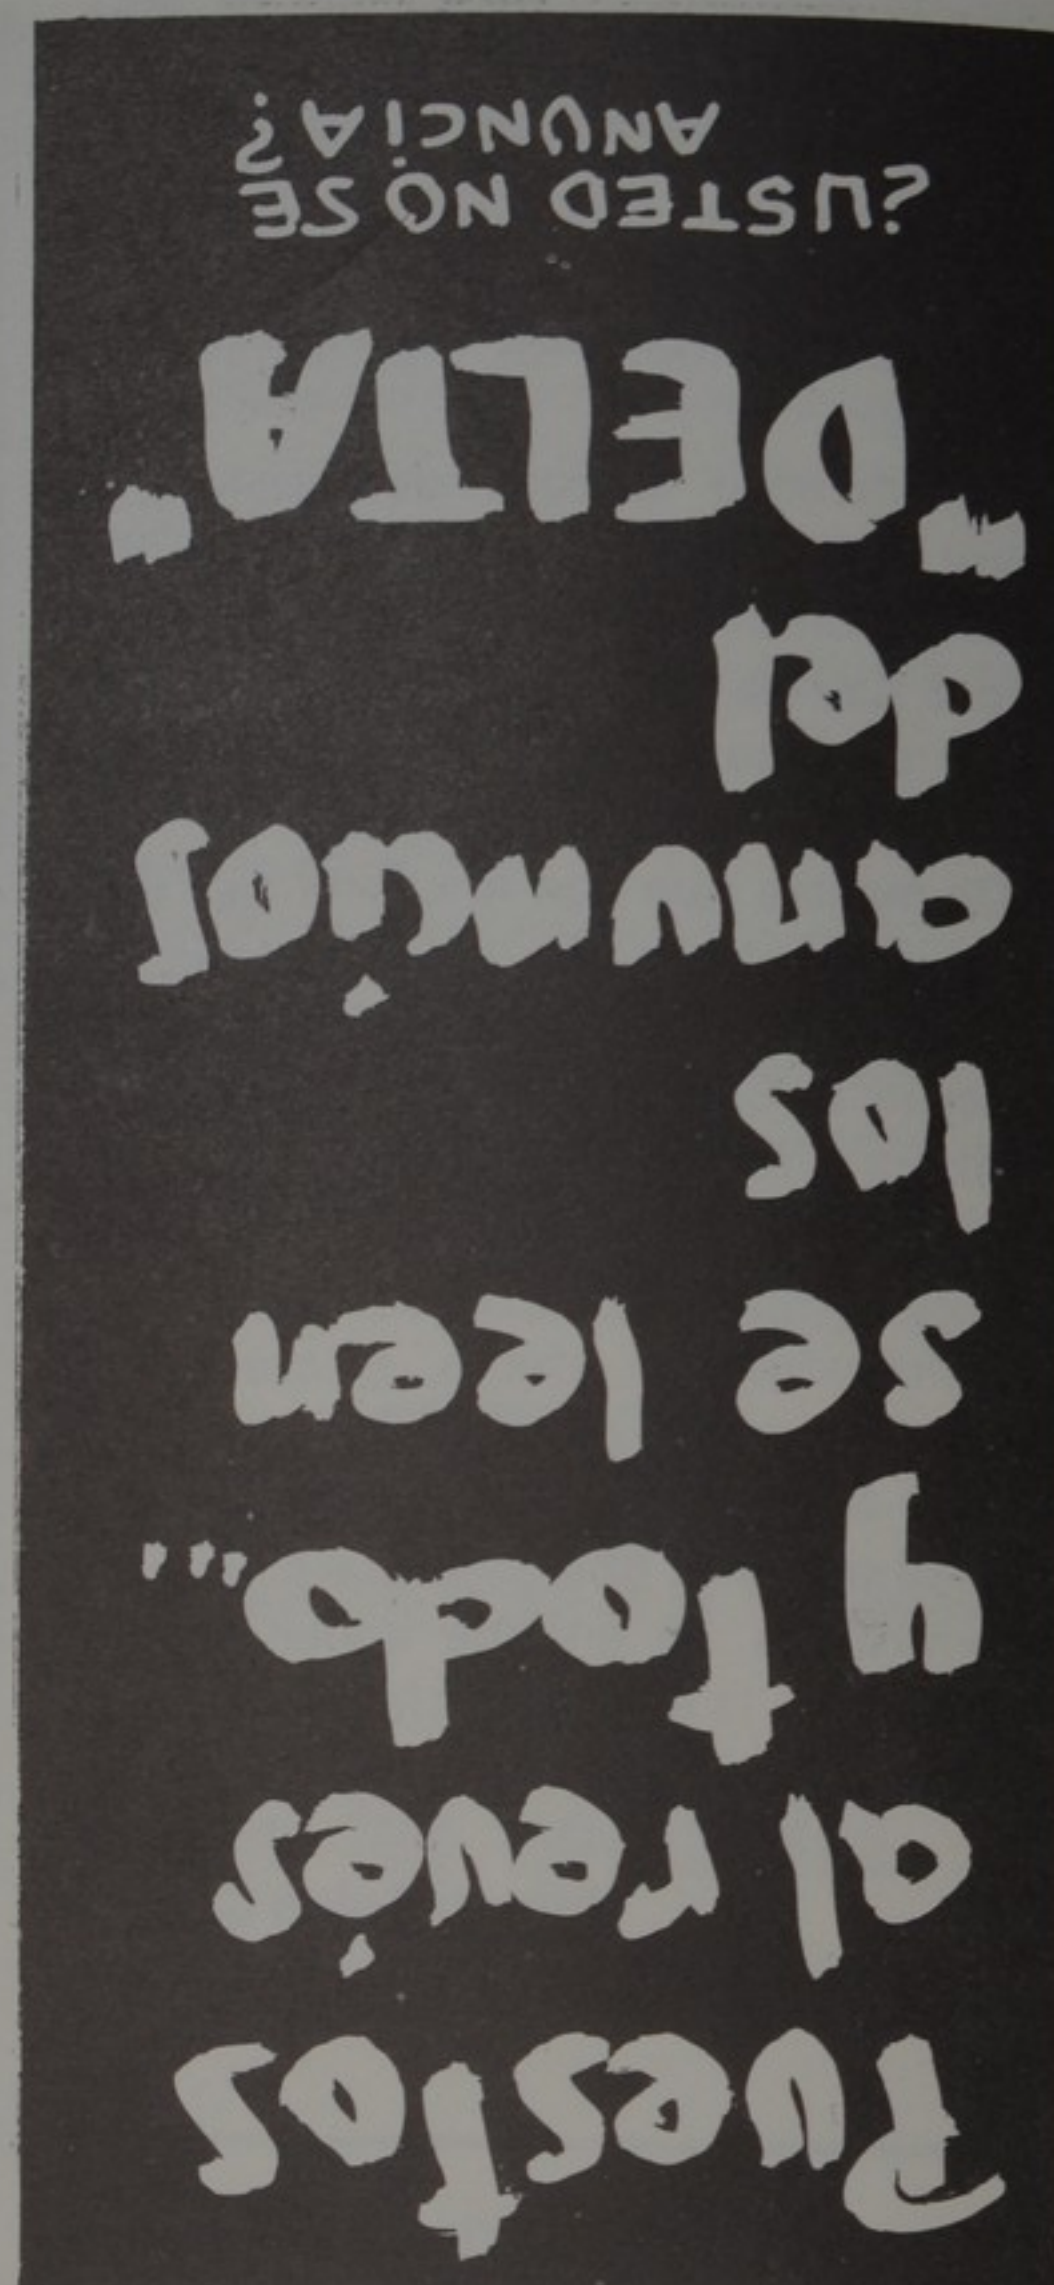 Puestos
al revés
y todo...
se leen
los
anuncios
del
"DELTA"
¿USTED NO SE
ANUNCIA?